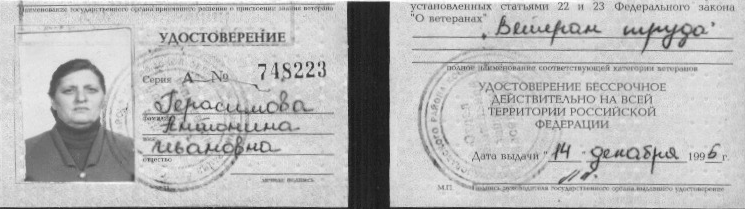 наименование государственного органа принявшего решение о присвоении звания ветерана
УДОСТОВЕРЕНИЕ
Серия А № 748223
Герасимова
фамилия
Антонина
имя
Ивановна
отчество
личная подпись
М.П.
установленных статьями 22 и 23 Федерального закона
"О ветеранах" „Ветеран труда"
полное наименование соответствующей категории ветеранов
УДОСТОВЕРЕНИЕ БЕССРОЧНОЕ
ДЕЙСТВИТЕЛЬНО НА ВСЕЙ
ТЕРРИТОРИИ РОССИЙСКОЙ
ФЕДЕРАЦИИ
Дата выдачи "14 декабря 1996 г.
М.П. Подпись руководителя государственного органа выдавшего удостоверение